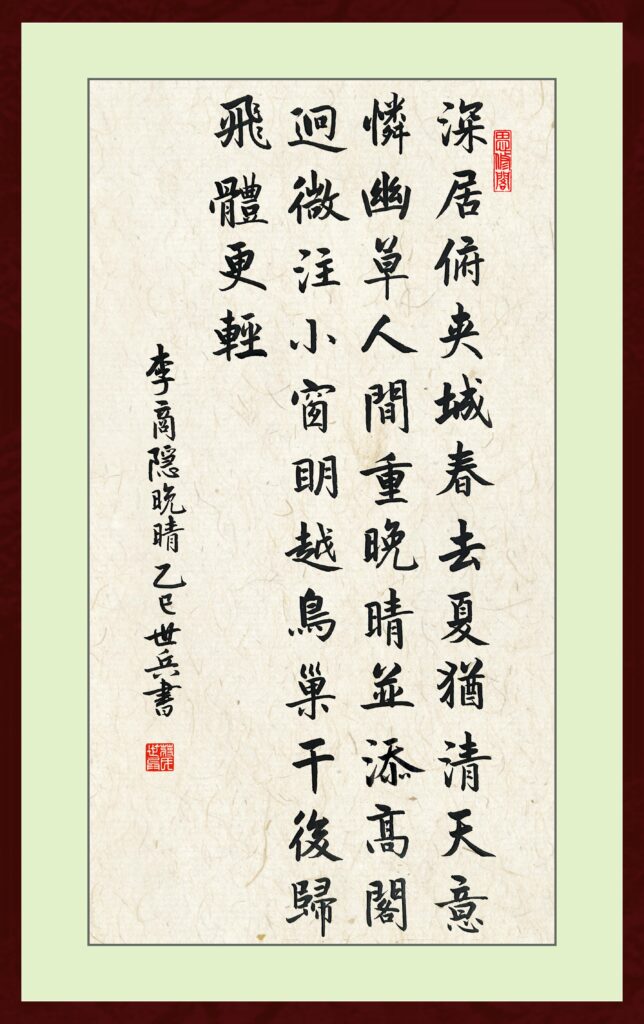 思修閣
深居俯夹城春去夏猶清天意
憐幽草人間重晚晴並添髙閣
迥微注小窗眀越鳥巢干後歸
飛體更輕
李商隐晚晴乙巳世兵書